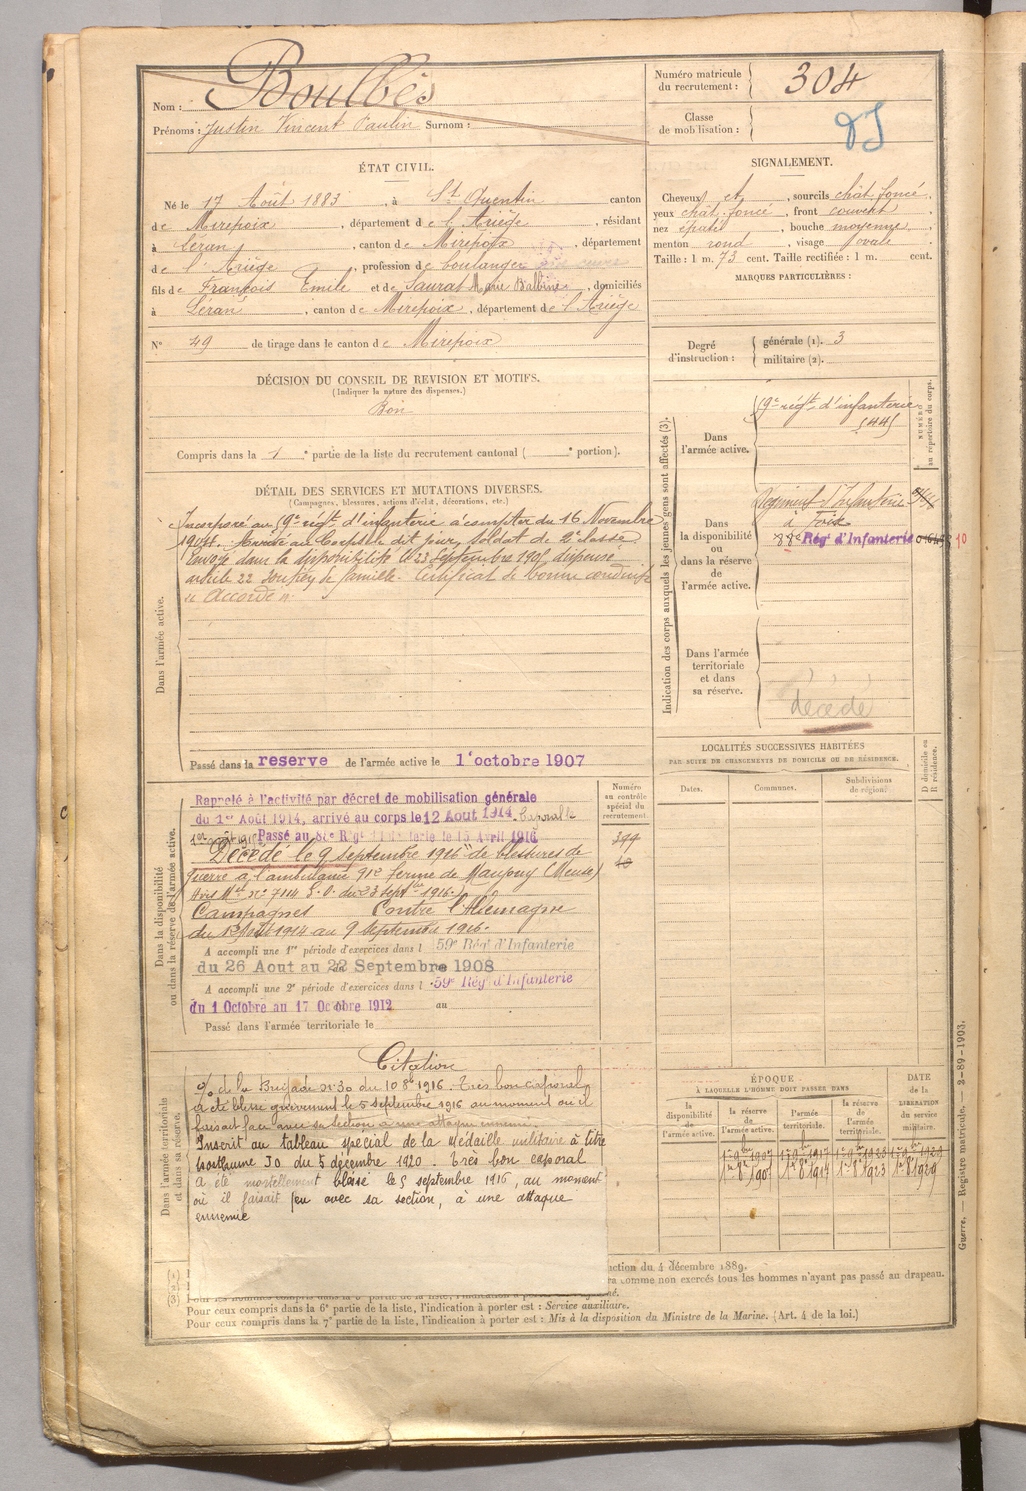 Nom : Boulbès
Prénoms : Justin Vincent Paulin Surnom :
Numéro matricule du recrutement : 304
Classe de mobilisation :
ÉTAT CIVIL.
Né le 17 Août 1883, à St Quentin canton
de Mirepoix, département de l'Ariège, résidant
à Léran, canton de Mirepoix, département
de l'Ariège, profession de boulanger
fils de François Emile et de Saurat Marie Balbine, domiciliés
à Léran, canton de Mirepoix, département de l'Ariège
N° 49 de tirage dans le canton de Mirepoix
SIGNALEMENT.
Cheveux et, sourcils chât. foncé,
yeux chât. foncé, front couvert,
nez épaté, bouche moyenne,
menton rond, visage ovale
Taille : 1 m. 73 cent. Taille rectifiée : 1 m. cent.
MARQUES PARTICULIÈRES :
Degré d'instruction :
générale (1). 3
militaire (2).
DÉCISION DU CONSEIL DE REVISION ET MOTIFS.
(Indiquer la nature des dispenses.)
Bon
Compris dans la 1e partie de la liste du recrutement cantonal ( e portion).
DÉTAIL DES SERVICES ET MUTATIONS DIVERSES.
(Campagnes, blessures, actions d'éclat, décorations, etc.)
Dans l'armée active.
Incorporé au 59e régt d'infanterie à compter du 16 Novembre
1904. Arrivé au Corps le dit jour, soldat de 2e classe
Envoyé dans la disponibilité le 23 Septembre 1905, dispensé
article 22 soutien de famille. Certificat de bonne conduite
Accordé
Passé dans la reserve de l'armée active le 1er octobre 1907
Indication des corps auxquels les jeunes gens sont affectés (3).
NUMÉRO au répertoire du corps.
Dans l'armée active.
59e régt d'infanterie
5445
Dans la disponibilité ou dans la réserve de l'armée active.
Régiment d'Infanterie
à Foix
88e Régt d'Infanterie
10
Dans l'armée territoriale et dans sa réserve.
décédé
LOCALITÉS SUCCESSIVES HABITÉES
PAR SUITE DE CHANGEMENTS DE DOMICILE OU DE RÉSIDENCE.
Dates.
Communes.
Subdivisions de région.
D domicile ou R résidence.
Dans la disponibilité ou dans la réserve de l'armée active.
Numéro au contrôle spécial du recrutement.
399
10
Rappelé à l'activité par décret de mobilisation générale
du 1er Août 1914, arrivé au corps le 12 Aout 1914. Caporal le
Passé au 88e Régt d'Infanterie le 15 Avril 1916
Décédé le 9 septembre 1916 de blessures de
guerre à l'ambulance 91e ferme de Maupuy (Meuse)
Avis Mel n° 7114 du 23 septbre 1916.
Campagnes Contre l'Allemagne
du 12 Août 1914 au 9 Septembre 1916.
A accompli une 1re période d'exercices dans l 59e Régt d'Infanterie
du 26 Aout au 22 Septembre 1908
A accompli une 2e période d'exercices dans l 59e Régt d'Infanterie
du 1 Octobre au 17 Octobre 1912 au
Passé dans l'armée territoriale le
Dans l'armée territoriale et dans sa réserve.
Citation
% de la Brigade n: 30 du 10 8bre 1916. Très bon caporal,
a été blessé grièvement le 5 septembre 1916 au moment où il
faisait face avec sa section à une attaque ennemie.
Inscrit au tableau spécial de la Médaille militaire à titre
posthume JO du 5 décembre 1920. Très bon caporal
a été mortellement blessé le 5 septembre 1916, au moment
où il faisait feu avec sa section, à une attaque
ennemie
ÉPOQUE
À LAQUELLE L'HOMME DOIT PASSER DANS
la disponibilité de l'armée active.
la réserve de l'armée active.
l'armée territoriale.
la réserve de l'armée territoriale.
DATE de la LIBÉRATION du service militaire.
1er 8bre 1907
1er 8bre 1917
1er 8bre 1923
1er 8bre 1929
(1)
(2)
(3)
nction du 4 décembre 1889.
ra comme non exercés tous les hommes n'ayant pas passé au drapeau.
Pour ceux compris dans la 6e partie de la liste, l'indication à porter est : Service auxiliaire.
Pour ceux compris dans la 7e partie de la liste, l'indication à porter est : Mis à la disposition du Ministre de la Marine. (Art. 4 de la loi.)
Guerre. — Registre matricule. — 3-89-1903.